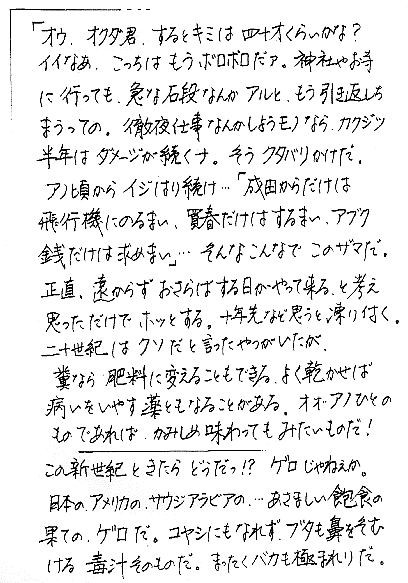 「オウ、オクダ君、するとキミは四十才くらいかな?
イイなあ、こっちはもうボロボロだァ。神社やお寺
に行っても、急な石段なんかアルと、もう引き返しち
まうっての。徹夜仕事なんかしようモノなら、カクジツ
半年はダメージが続くナ。そうクタバリかけだ。
アノ頃からイジはり続け…「成田からだけは
飛行機にのるまい、買春だけはするまい、アブク
銭だけは求めまい」… そんなこんなでこのザマだ。
正直、遠からずおさらばする日がやって来る、と考え
思っただけでホッとする。十年先など思うと凍り付く。
二十世紀はクソだと言ったやつがいたが、
糞なら肥料に変えることもできる、よく乾かせば
病いをいやす薬ともなることがある。オオ・アノひとの
ものであれば、かみしめ味わってもみたいものだ!
この新世紀ときたらどうだっ!? ゲロじゃねぇか。
日本の、アメリカの、サウジアラビアの、…あさましい飽食の
果ての、ゲロだ。コヤシにもなれず、ブタも鼻をそむ
ける毒汁そのものだ。まったくバカも極まれりだ。